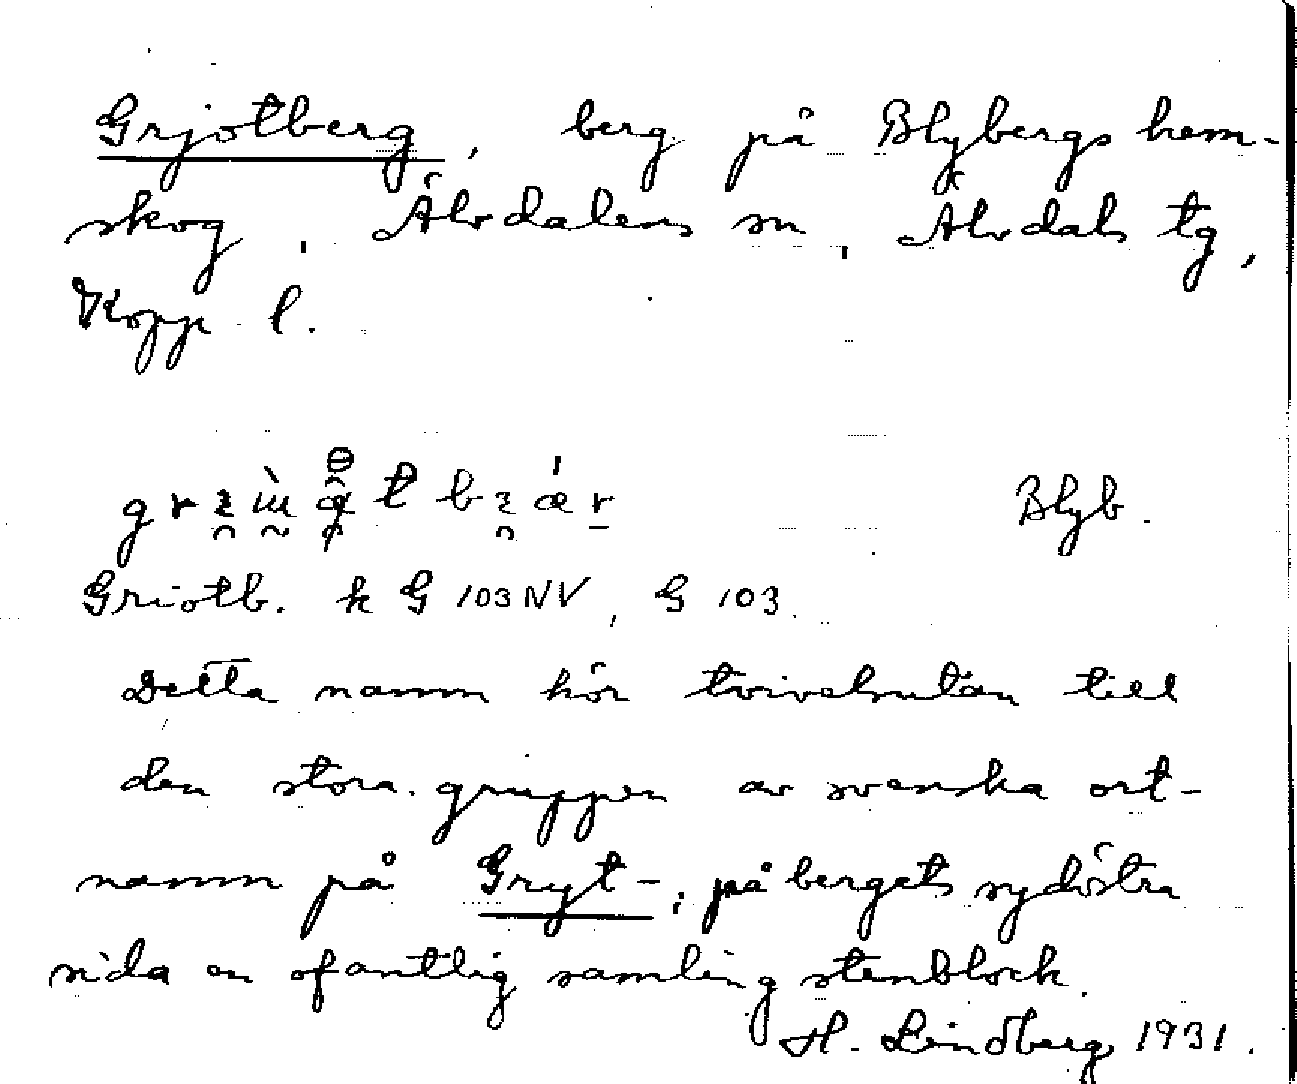 Grjotberg, berg på Blybergs hem-
skog, Älvdalens sn, Älvdals tg,
Kopp l.
Blyb.
Griotb. k G 103 NV, G 103
Detta namn hör tvivelsutan till
den stora gruppen av svenska ort-
namn på Gryt-; på bergets sydöstra
sida en ofantlig samling stenblock.
H. Lindberg 1931.